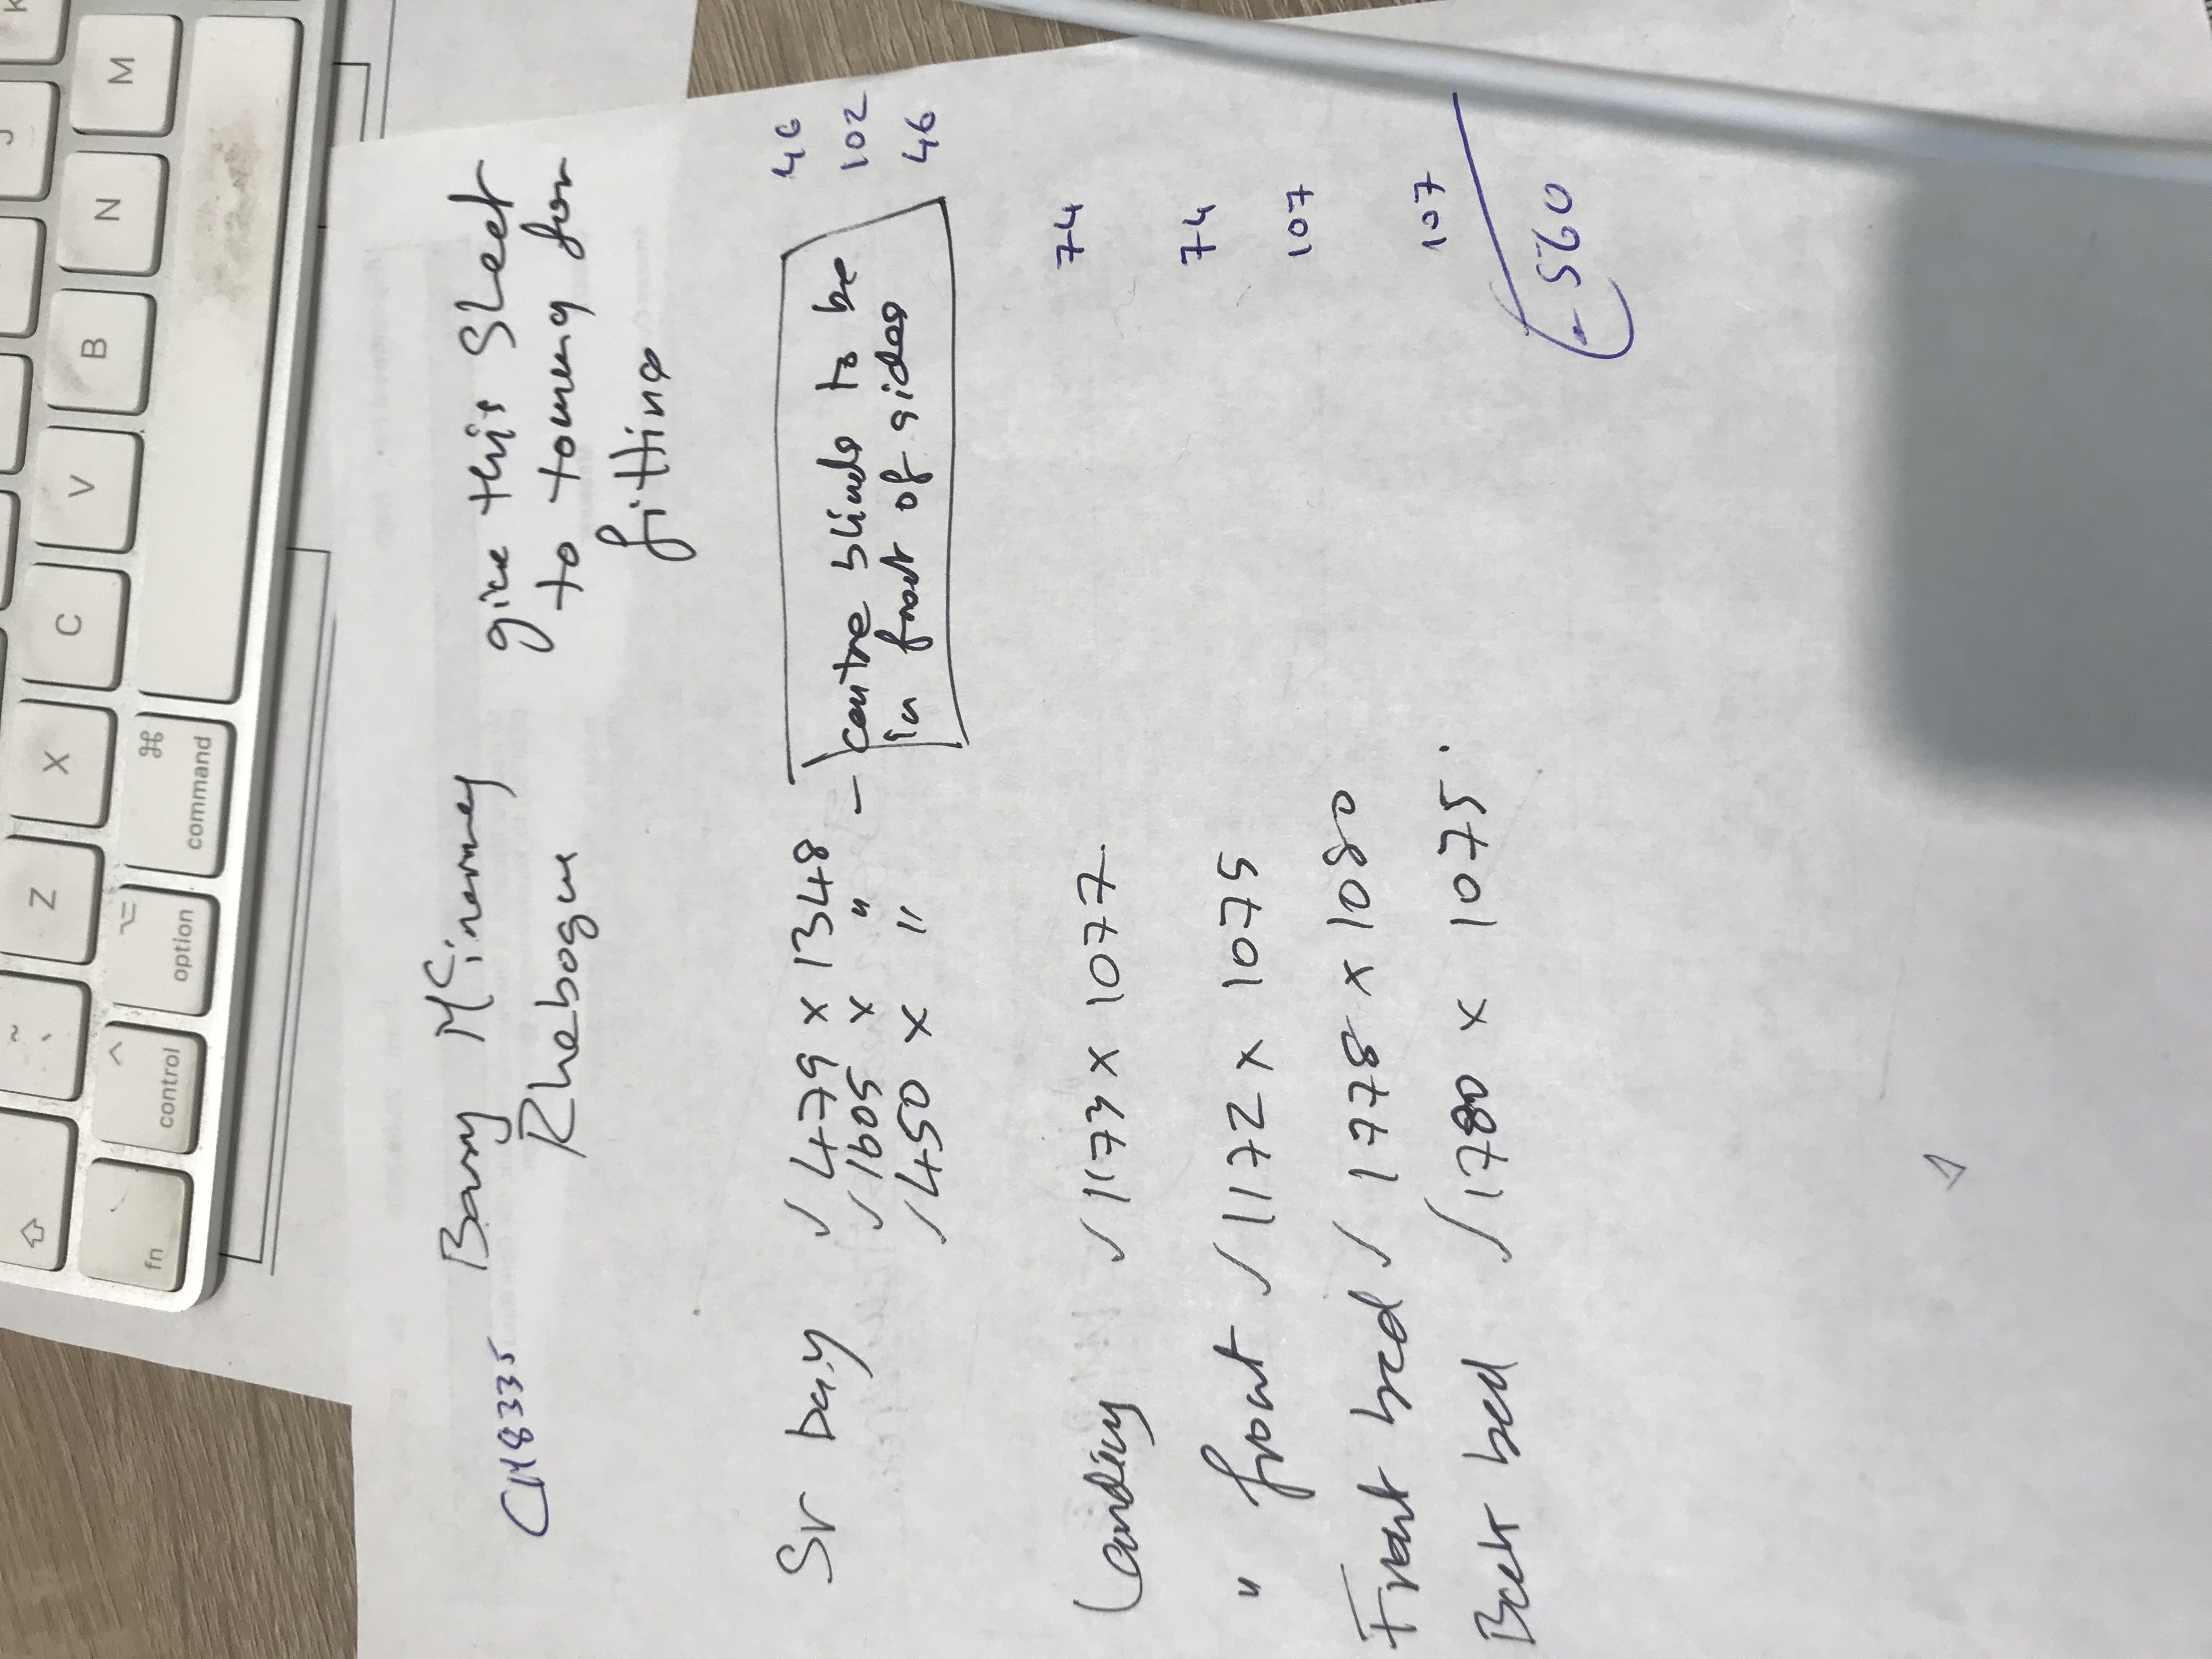 CH8335 Barry McInerney give this sheet
Rhebogue to tommy for
fitting
Sr bay ✓ 479 x 1348 46
✓ 1605 x " - centre blinds to be 102
✓ 450 x " in front of sides 46
Landing ✓ 1173 x 1077 74
" front ✓ 1172 x 1075 74
Front bed ✓ 1778 x 1080 107
Back bed ✓ 1780 x 1075. 107
560
M
N
B
V
C
X
Z
command
option
control
fn